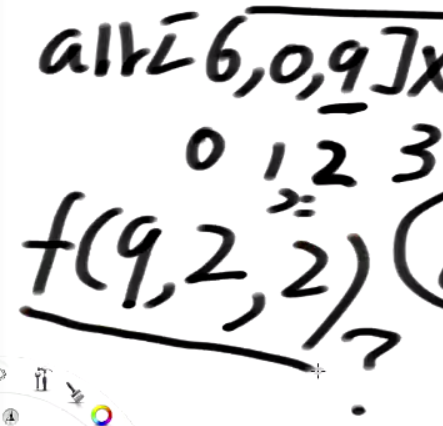 arr[6,0,9]x
0 1 2 3
>=
f(9,2,2)?